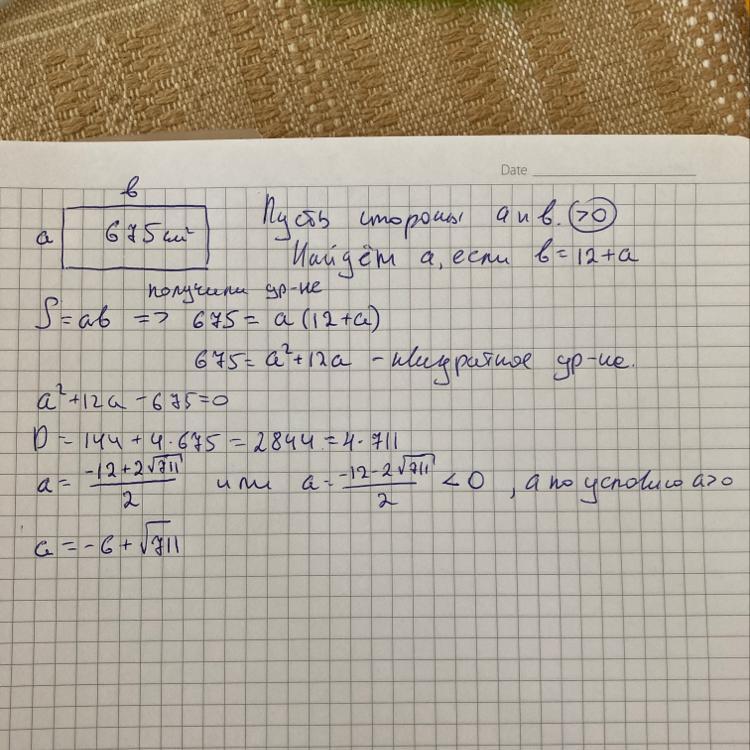 Date
в
а 675 см²
Пусть стороны а и в. >0
Найдём а, если в = 12 + а
получили ур-не
S = ав => 675 = а (12 + а)
675 = а² + 12а - квадратное ур-не.
а² + 12а - 675 = 0
D = 144 + 4·675 = 2844 = 4·711
а = (-12 + 2√711)/2 или а = (-12 - 2√711)/2 < 0, а по условию а>0
а = -6 + √711